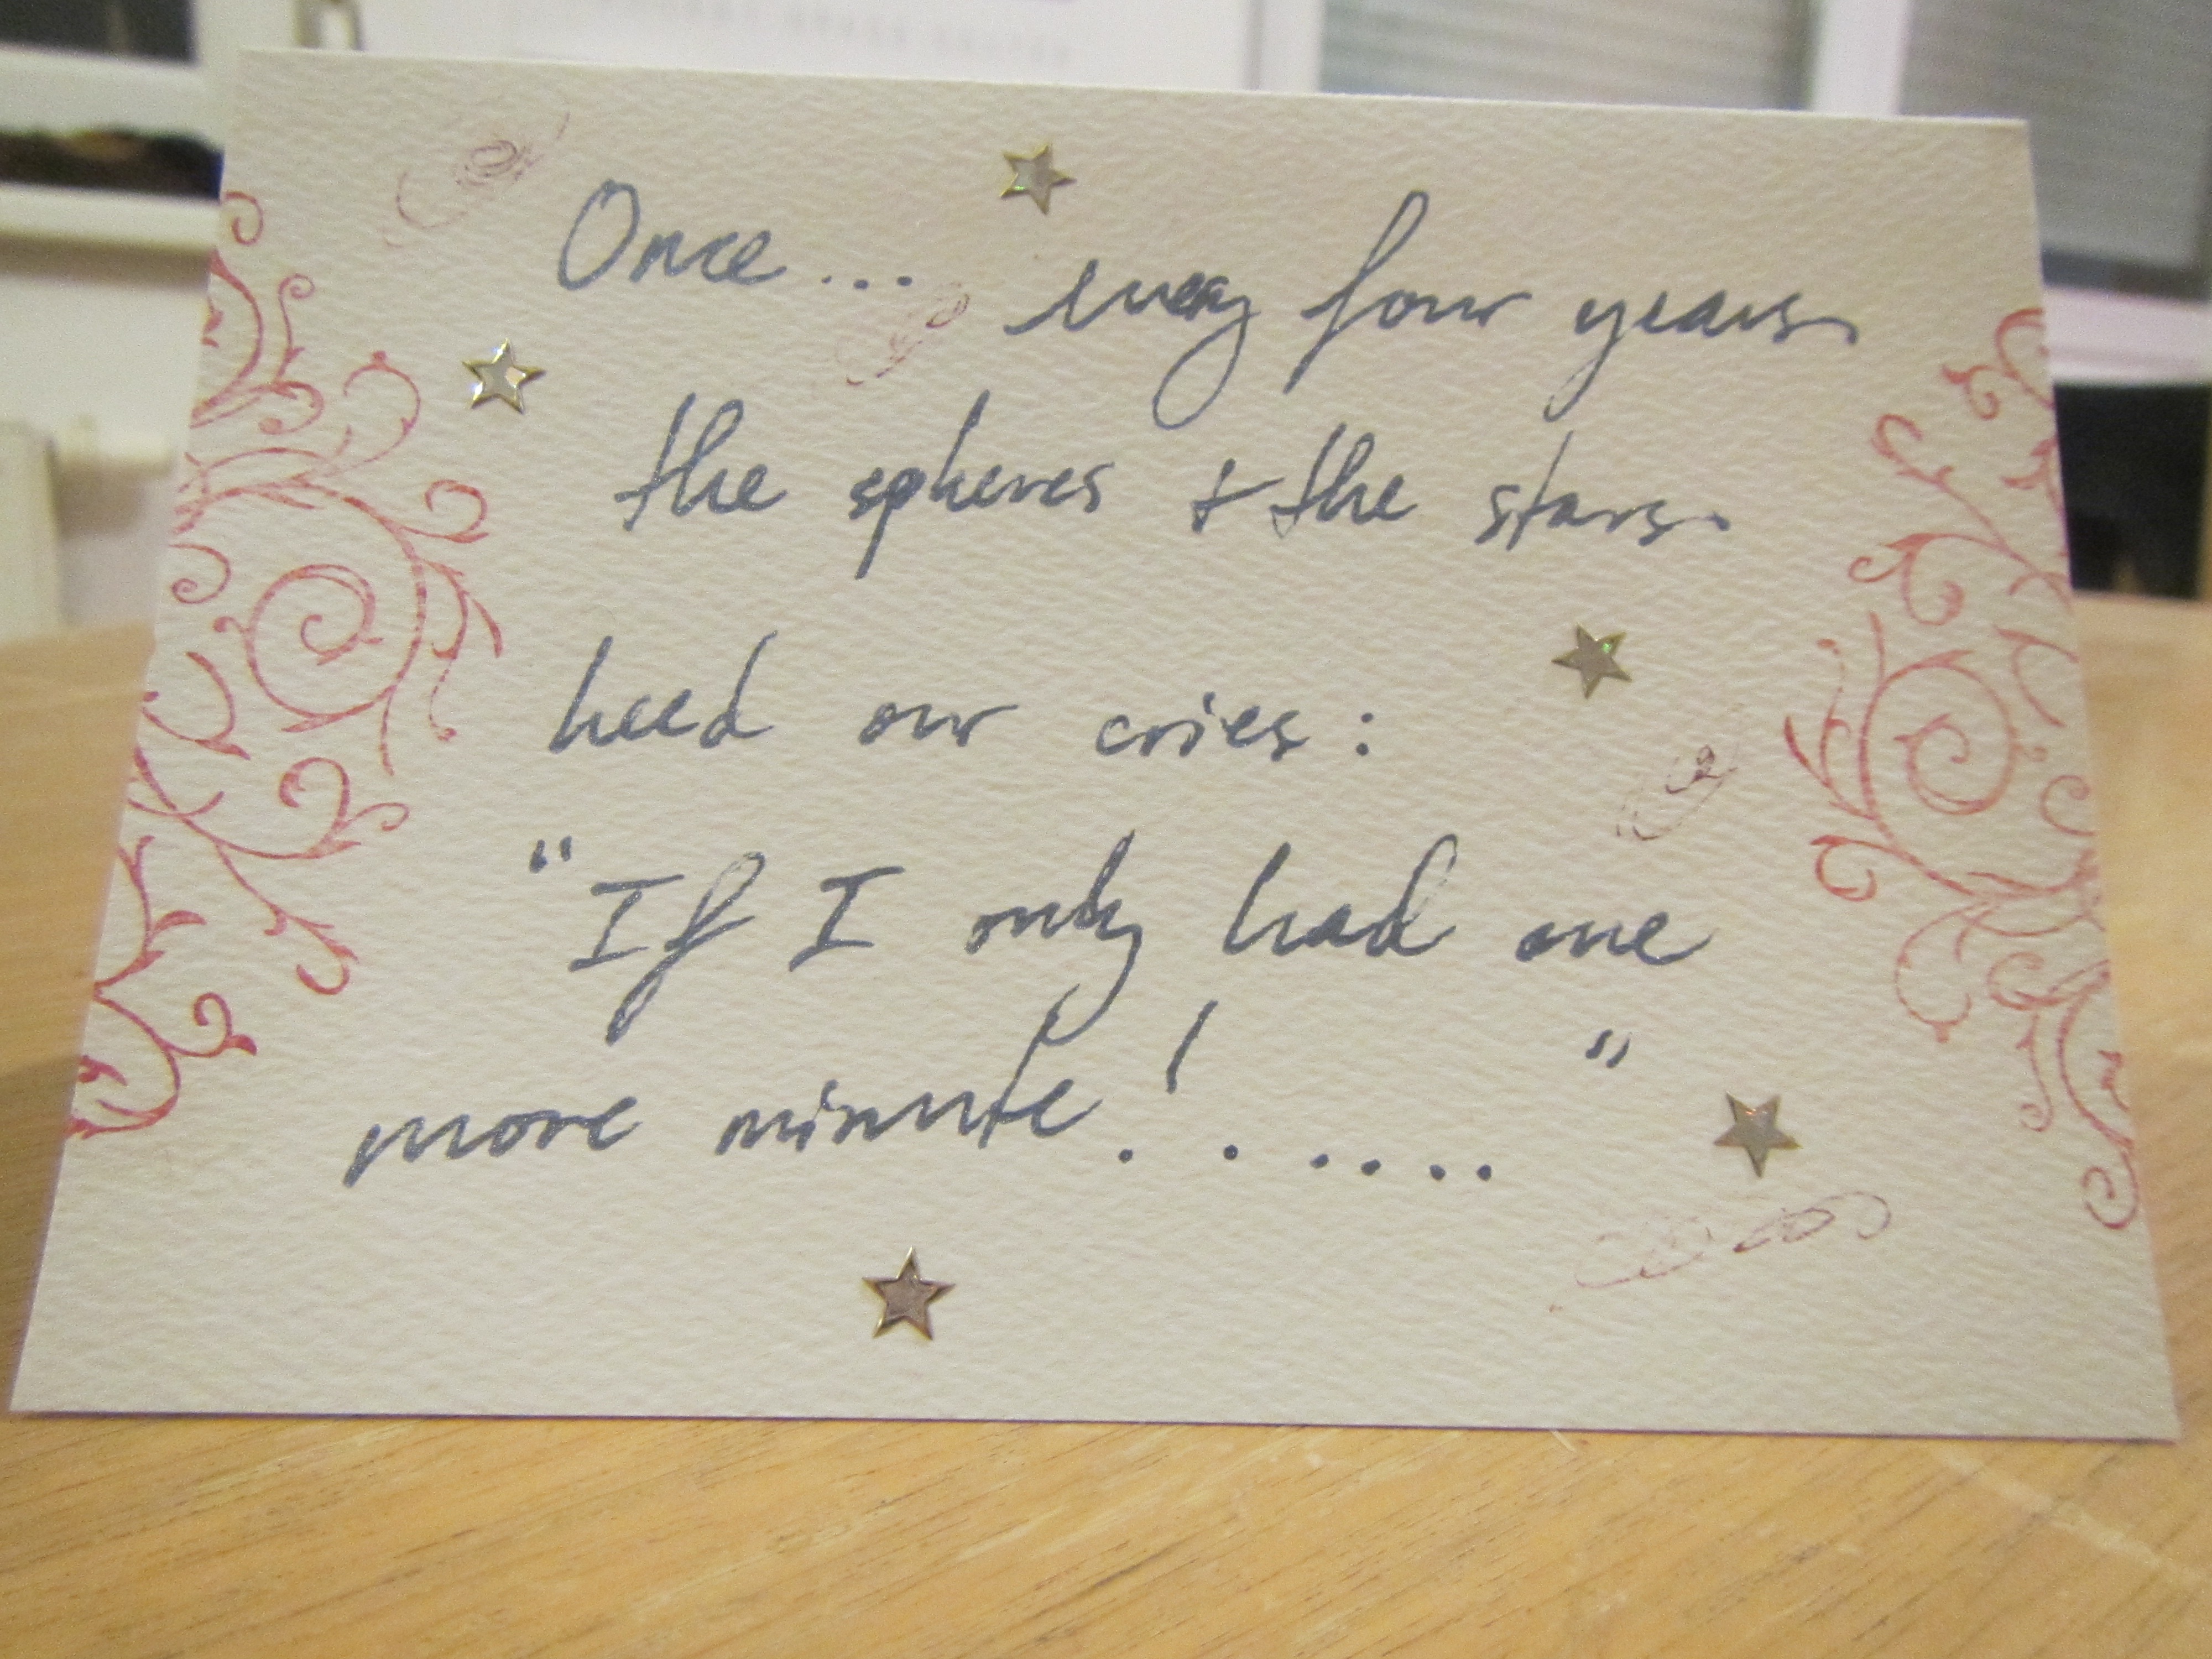 Once... every four years
the spheres & the stars
heed our cries:
"If I only had one
more minute! ....."